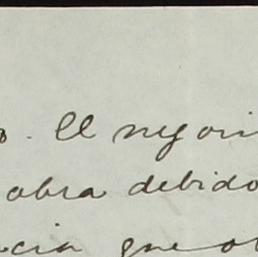 o. El negori
obra debido
ncia que o